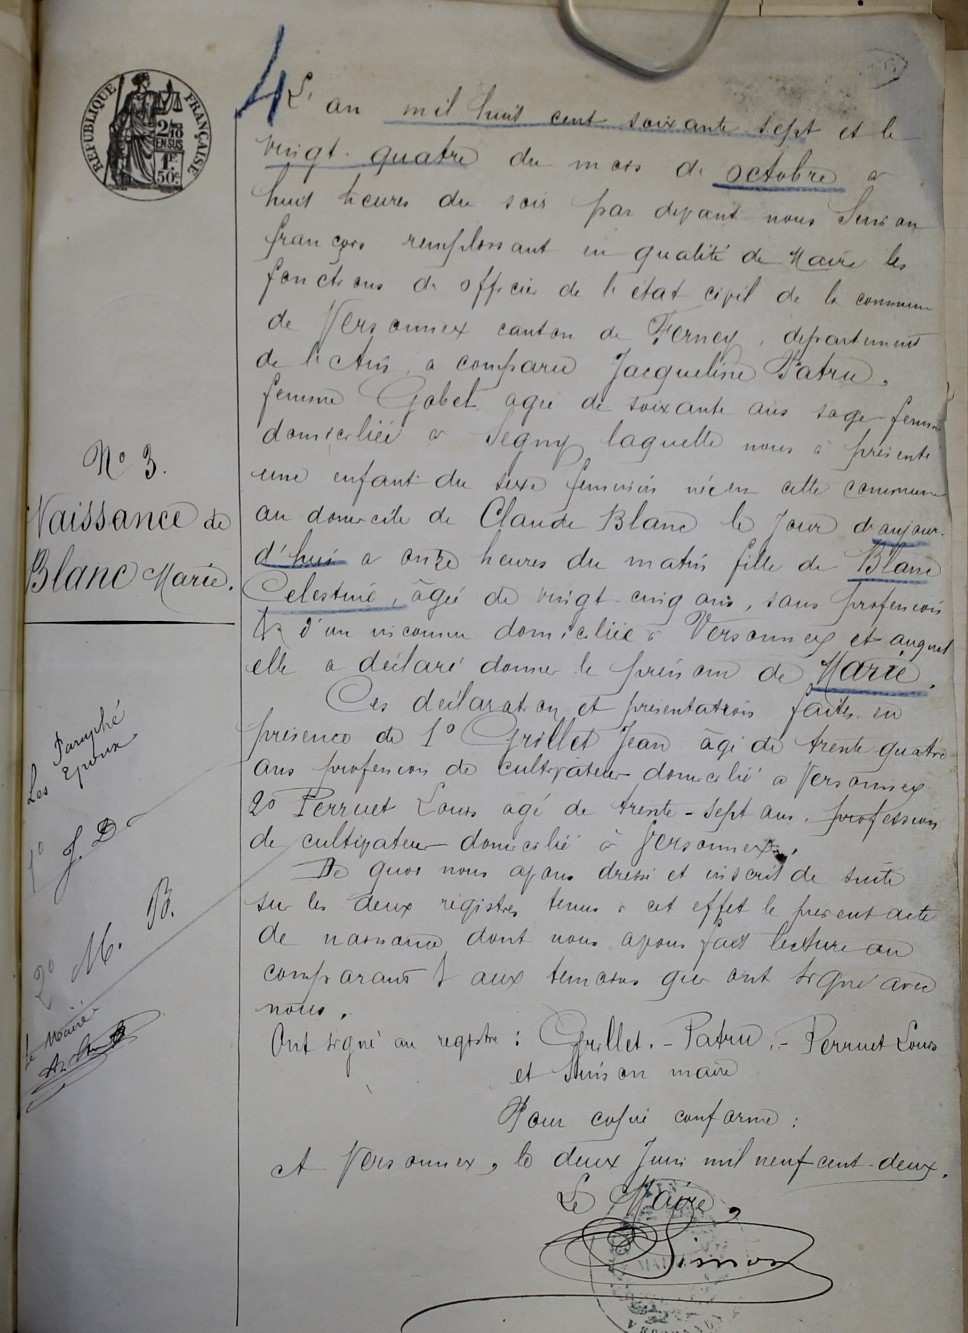 RÉPUBLIQUE FRANÇAISE
2/10
EN SUS
1F
50c
4
L'an mil huit cent soixante sept et le
vingt-quatre du mois de octobre à
huit heures du soir par devant nous
françois remplissant en qualité de Maire les
fonctions de officier de l'état civil de la commune
de Versonnex canton de Ferney, département
de l'Ain, a comparu Jacqueline Patru,
femme Gobet agée de soixante ans sage-femme
domiciliée à Segny laquelle nous à présenté
une enfant du sexe feminin née en cette commune
au domicile de Claude Blanc le jour d'aujour-
d'hui à onze heures du matin fille de Blanc
Celestine, âgée de vingt-cinq ans, sans profession
& d'un inconnu domiciliée à Versonnex et auquel
elle a déclaré donner le prénom de Marie.
Ces déclaration et présentation faites en
présence de 1° Grillet Jean âgé de trente-quatre
ans profession de cultivateur domicilié à Versonnex
2° Perruet Louis agé de trente-sept ans, profession
de cultivateur domicilié à Versonnex.
De quoi nous avons dressé et inscrit de suite
sur les deux registres tenus à cet effet le présent acte
de naissance dont nous avons fait lecture au
comparant & aux temoins qui ont signé avec
nous.
Ont signé au registre : Grillet. - Patru. - Perruet Louis
et maire
Pour copie conforme :
A Versonnex, le deux Juin mil neuf cent-deux.
Le Maire,
Simon
N° 3.
Naissance de
Blanc Marie.
Paraphé
Les Epoux
1° J. D.
2° M. B.
Le Maire